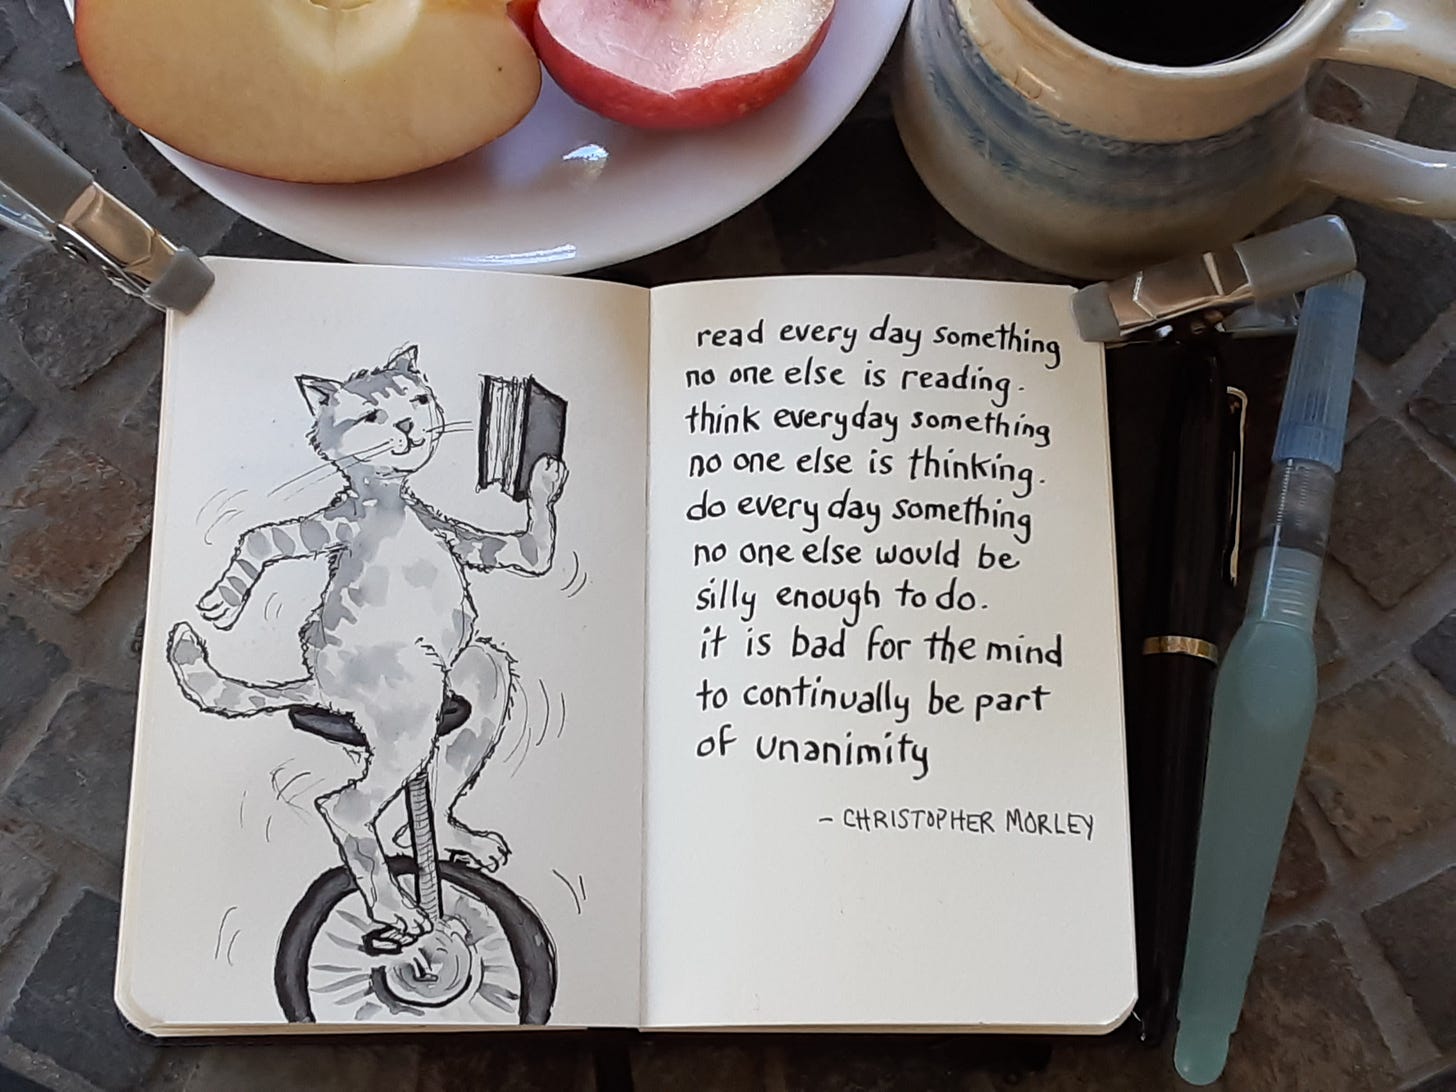 read every day something
no one else is reading.
think everyday something
no one else is thinking.
do every day something
no one else would be
silly enough to do.
it is bad for the mind
to continually be part
of unanimity
- CHRISTOPHER MORLEY